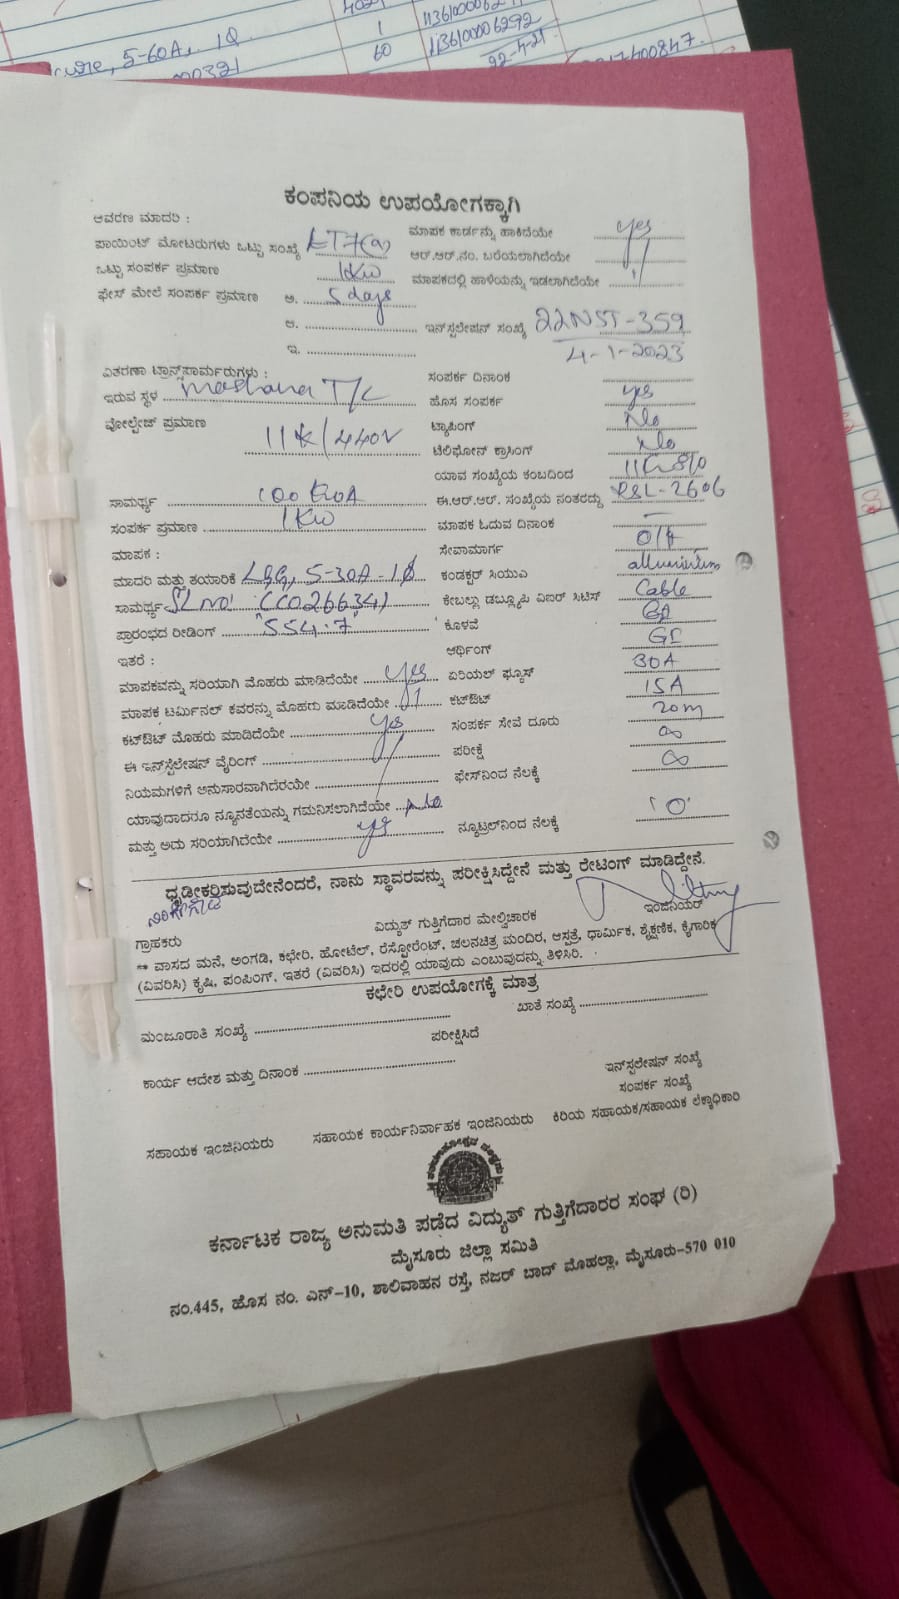 4021
cure, 5-60A, 1Q 1 11361000062
00321 60 11361000006292
22-4-21
17400847.
ಕಂಪನಿಯ ಉಪಯೋಗಕ್ಕಾಗಿ
ಆವರಣ ಮಾದರಿ : ಮಾಪಕ ಕಾರ್ಡನ್ನು ಹಾಕಿದೆಯೇ yes
ಪಾಯಿಂಟ್ ಮೋಟರುಗಳು ಒಟ್ಟು ಸಂಖ್ಯೆ LT7(a) ಆರ್.ಆರ್.ನಂ. ಬರೆಯಲಾಗಿದೆಯೇ "
ಒಟ್ಟು ಸಂಪರ್ಕ ಪ್ರಮಾಣ 1KW ಮಾಪಕದಲ್ಲಿ ಹಾಳೆಯನ್ನು ಇಡಲಾಗಿದೆಯೇ
ಫೇಸ್ ಮೇಲೆ ಸಂಪರ್ಕ ಪ್ರಮಾಣ ಅ. 5 days
ಆ. ಇನ್‌ಸ್ಟಲೇಷನ್ ಸಂಖ್ಯೆ 22NST-359
ಇ. 4-1-2023
ವಿತರಣಾ ಟ್ರಾನ್ಸ್‌ಫಾರ್ಮರುಗಳು : ಸಂಪರ್ಕ ದಿನಾಂಕ
ಇರುವ ಸ್ಥಳ T/C ಹೊಸ ಸಂಪರ್ಕ yes
ವೋಲ್ಟೇಜ್ ಪ್ರಮಾಣ ಟ್ಯಾಪಿಂಗ್ No
11K/440V ಟೆಲಿಫೋನ್ ಕ್ರಾಸಿಂಗ್ No
ಯಾವ ಸಂಖ್ಯೆಯ ಕಂಬದಿಂದ
ಸಾಮರ್ಥ್ಯ 100 KVA ಈ.ಆರ್.ಆರ್. ಸಂಖ್ಯೆಯ ನಂತರದ್ದು RSL-2606
ಸಂಪರ್ಕ ಪ್ರಮಾಣ 1KW ಮಾಪಕ ಓದುವ ದಿನಾಂಕ —
ಮಾಪಕ : ಸೇವಾಮಾರ್ಗ O/H
ಮಾದರಿ ಮತ್ತು ತಯಾರಿಕೆ L&G, 5-30A-1ϕ ಕಂಡಕ್ಟರ್ ಸಿಯುಎ alluminium
ಸಾಮರ್ಥ್ಯ SL NO: (CC026634) ಕೇಬಲ್ಲು ಡಬ್ಲ್ಯೂಪಿ ವಿಐಆರ್ ಸಿಟಿಸ್ Cable
ಪ್ರಾರಂಭದ ರೀಡಿಂಗ್ "554.7" ಕೊಳವೆ GI
ಇತರೆ : ಅರ್ಥಿಂಗ್ GI
ಮಾಪಕವನ್ನು ಸರಿಯಾಗಿ ಮೊಹರು ಮಾಡಿದೆಯೇ yes ಏರಿಯಲ್ ಫ್ಯೂಸ್ 30A
ಮಾಪಕ ಟರ್ಮಿನಲ್ ಕವರನ್ನು ಮೊಹರು ಮಾಡಿದೆಯೇ " ಕಟ್‌ಔಟ್ 15A
ಕಟ್‌ಔಟ್ ಮೊಹರು ಮಾಡಿದೆಯೇ yes ಸಂಪರ್ಕ ಸೇವೆ ದೂರು 20m
ಈ ಇನ್‌ಸ್ಟೆಲೇಷನ್ ವೈರಿಂಗ್ ಪರೀಕ್ಷೆ ∞
ನಿಯಮಗಳಿಗೆ ಅನುಸಾರವಾಗಿದೆಯೇ ಫೇಸ್‌ನಿಂದ ನೆಲಕ್ಕೆ ∞
ಯಾವುದಾದರೂ ನ್ಯೂನತೆಯನ್ನು ಗಮನಿಸಲಾಗಿದೆಯೇ No
ಮತ್ತು ಅದು ಸರಿಯಾಗಿದೆಯೇ yes ನ್ಯೂಟ್ರಲ್‌ನಿಂದ ನೆಲಕ್ಕೆ 'O'
ಧೃಡೀಕರಿಸುವುದೇನೆಂದರೆ, ನಾನು ಸ್ಥಾವರವನ್ನು ಪರೀಕ್ಷಿಸಿದ್ದೇನೆ ಮತ್ತು ರೇಟಿಂಗ್ ಮಾಡಿದ್ದೇನೆ.
ಗ್ರಾಹಕರು ವಿದ್ಯುತ್ ಗುತ್ತಿಗೆದಾರ ಮೇಲ್ವಿಚಾರಕ ಇಂಜಿನಿಯರ್
** ವಾಸದ ಮನೆ, ಅಂಗಡಿ, ಕಛೇರಿ, ಹೋಟೆಲ್, ರೆಸ್ಟೋರೆಂಟ್, ಚಲನಚಿತ್ರ ಮಂದಿರ, ಆಸ್ಪತ್ರೆ, ಧಾರ್ಮಿಕ, ಶೈಕ್ಷಣಿಕ, ಕೈಗಾರಿಕ
(ವಿವರಿಸಿ) ಕೃಷಿ, ಪಂಪಿಂಗ್, ಇತರೆ (ವಿವರಿಸಿ) ಇದರಲ್ಲಿ ಯಾವುದು ಎಂಬುವುದನ್ನು ತಿಳಿಸಿರಿ.
ಕಛೇರಿ ಉಪಯೋಗಕ್ಕೆ ಮಾತ್ರ
ಮಂಜೂರಾತಿ ಸಂಖ್ಯೆ ಖಾತೆ ಸಂಖ್ಯೆ
ಪರೀಕ್ಷಿಸಿದೆ
ಕಾರ್ಯ ಆದೇಶ ಮತ್ತು ದಿನಾಂಕ ಇನ್‌ಸ್ಟಲೇಷನ್ ಸಂಖ್ಯೆ
ಸಂಪರ್ಕ ಸಂಖ್ಯೆ
ಸಹಾಯಕ ಇಂಜಿನಿಯರು ಸಹಾಯಕ ಕಾರ್ಯನಿರ್ವಾಹಕ ಇಂಜಿನಿಯರು ಕಿರಿಯ ಸಹಾಯಕ/ಸಹಾಯಕ ಲೆಕ್ಕಾಧಿಕಾರಿ
ಕರ್ನಾಟಕ ರಾಜ್ಯ ಅನುಮತಿ ಪಡೆದ ವಿದ್ಯುತ್ ಗುತ್ತಿಗೆದಾರರ ಸಂಘ (ರಿ)
ಮೈಸೂರು ಜಿಲ್ಲಾ ಸಮಿತಿ
ನಂ.445, ಹೊಸ ನಂ. ಎನ್-10, ಶಾಲಿವಾಹನ ರಸ್ತೆ, ನಜರ್ ಬಾದ್ ಮೊಹಲ್ಲಾ, ಮೈಸೂರು-570 010